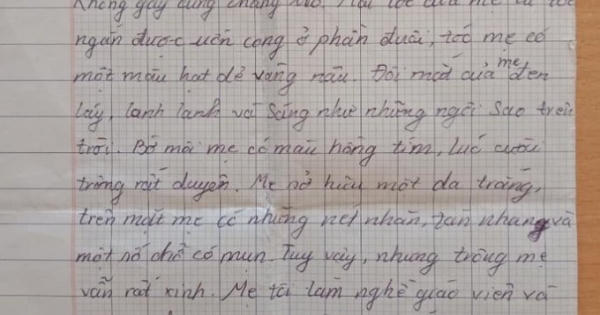 không gầy cũng chẳng béo. Mái tóc của mẹ là tóc
ngắn được uốn cong ở phần đuôi, tóc mẹ có
một màu hạt dẻ vàng nâu. Đôi mắt của mẹ đen
láy, lanh lanh và sáng như những ngôi sao trên
trời. Bờ môi mẹ có màu hồng tím, lúc cười
trông rất duyên. Mẹ nở hữu một da trắng,
trên mặt mẹ có những nét nhăn, tàn nhang và
một số chỗ có mụn. Tuy vậy, nhưng trông mẹ
vẫn rất xinh. Mẹ tôi làm nghề giáo viên và